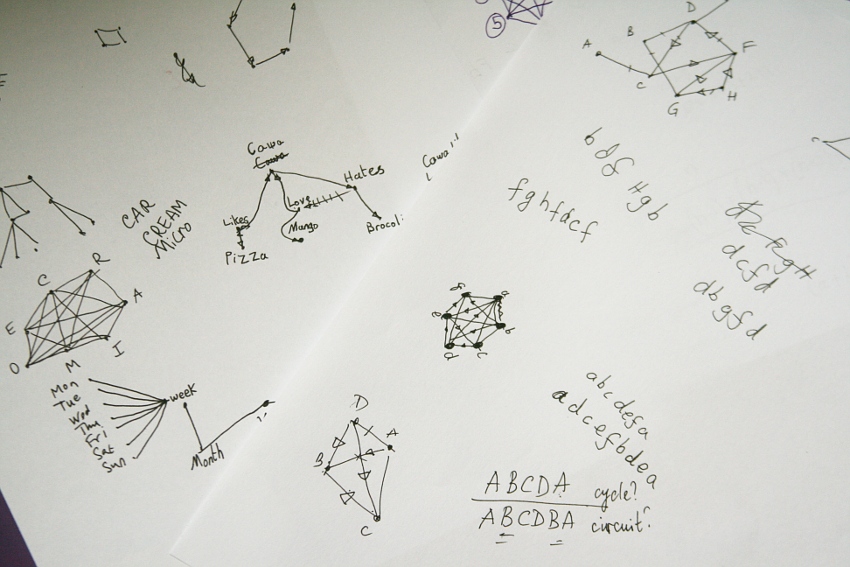 5
D
B
F
A
C
G
H
Cawa
Hates
Likes
Love
Mango
Brocoli
Pizza
Cawa
CAR
CREAM
Micro
R
C
A
E
I
O
M
Mon
Tue
Wed
Thu
Fri
Sat
Sun
week
Month
bdf Hgb
fghfdcf
dcfd
dbgfd
a
b
c
d
abcdefa
adcefbdea
D
A
B
C
ABCDA cycle?
ABCDBA circuit?